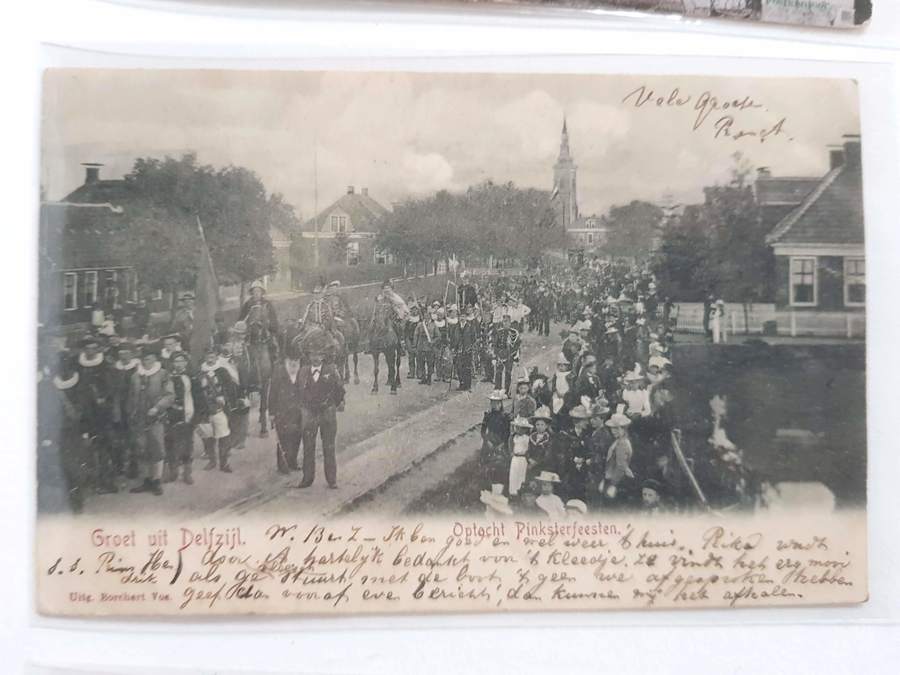 Vele groete
Groet uit Delfzijl.
Optocht Pinksterfeesten.
W. B. & Z – Ik ben goed en wel weer 't huis. Rika wadt
s.s. Prins Hendrik
door hartelijk bedankt voor 't kleedje. Ze vindt het erg mooi
als ge stuurt met de boot, 't geen we afgesproken hebben
geef dan vooraf even bericht, dan kunnen wij het afhalen.
Uitg. Borchert Vos.